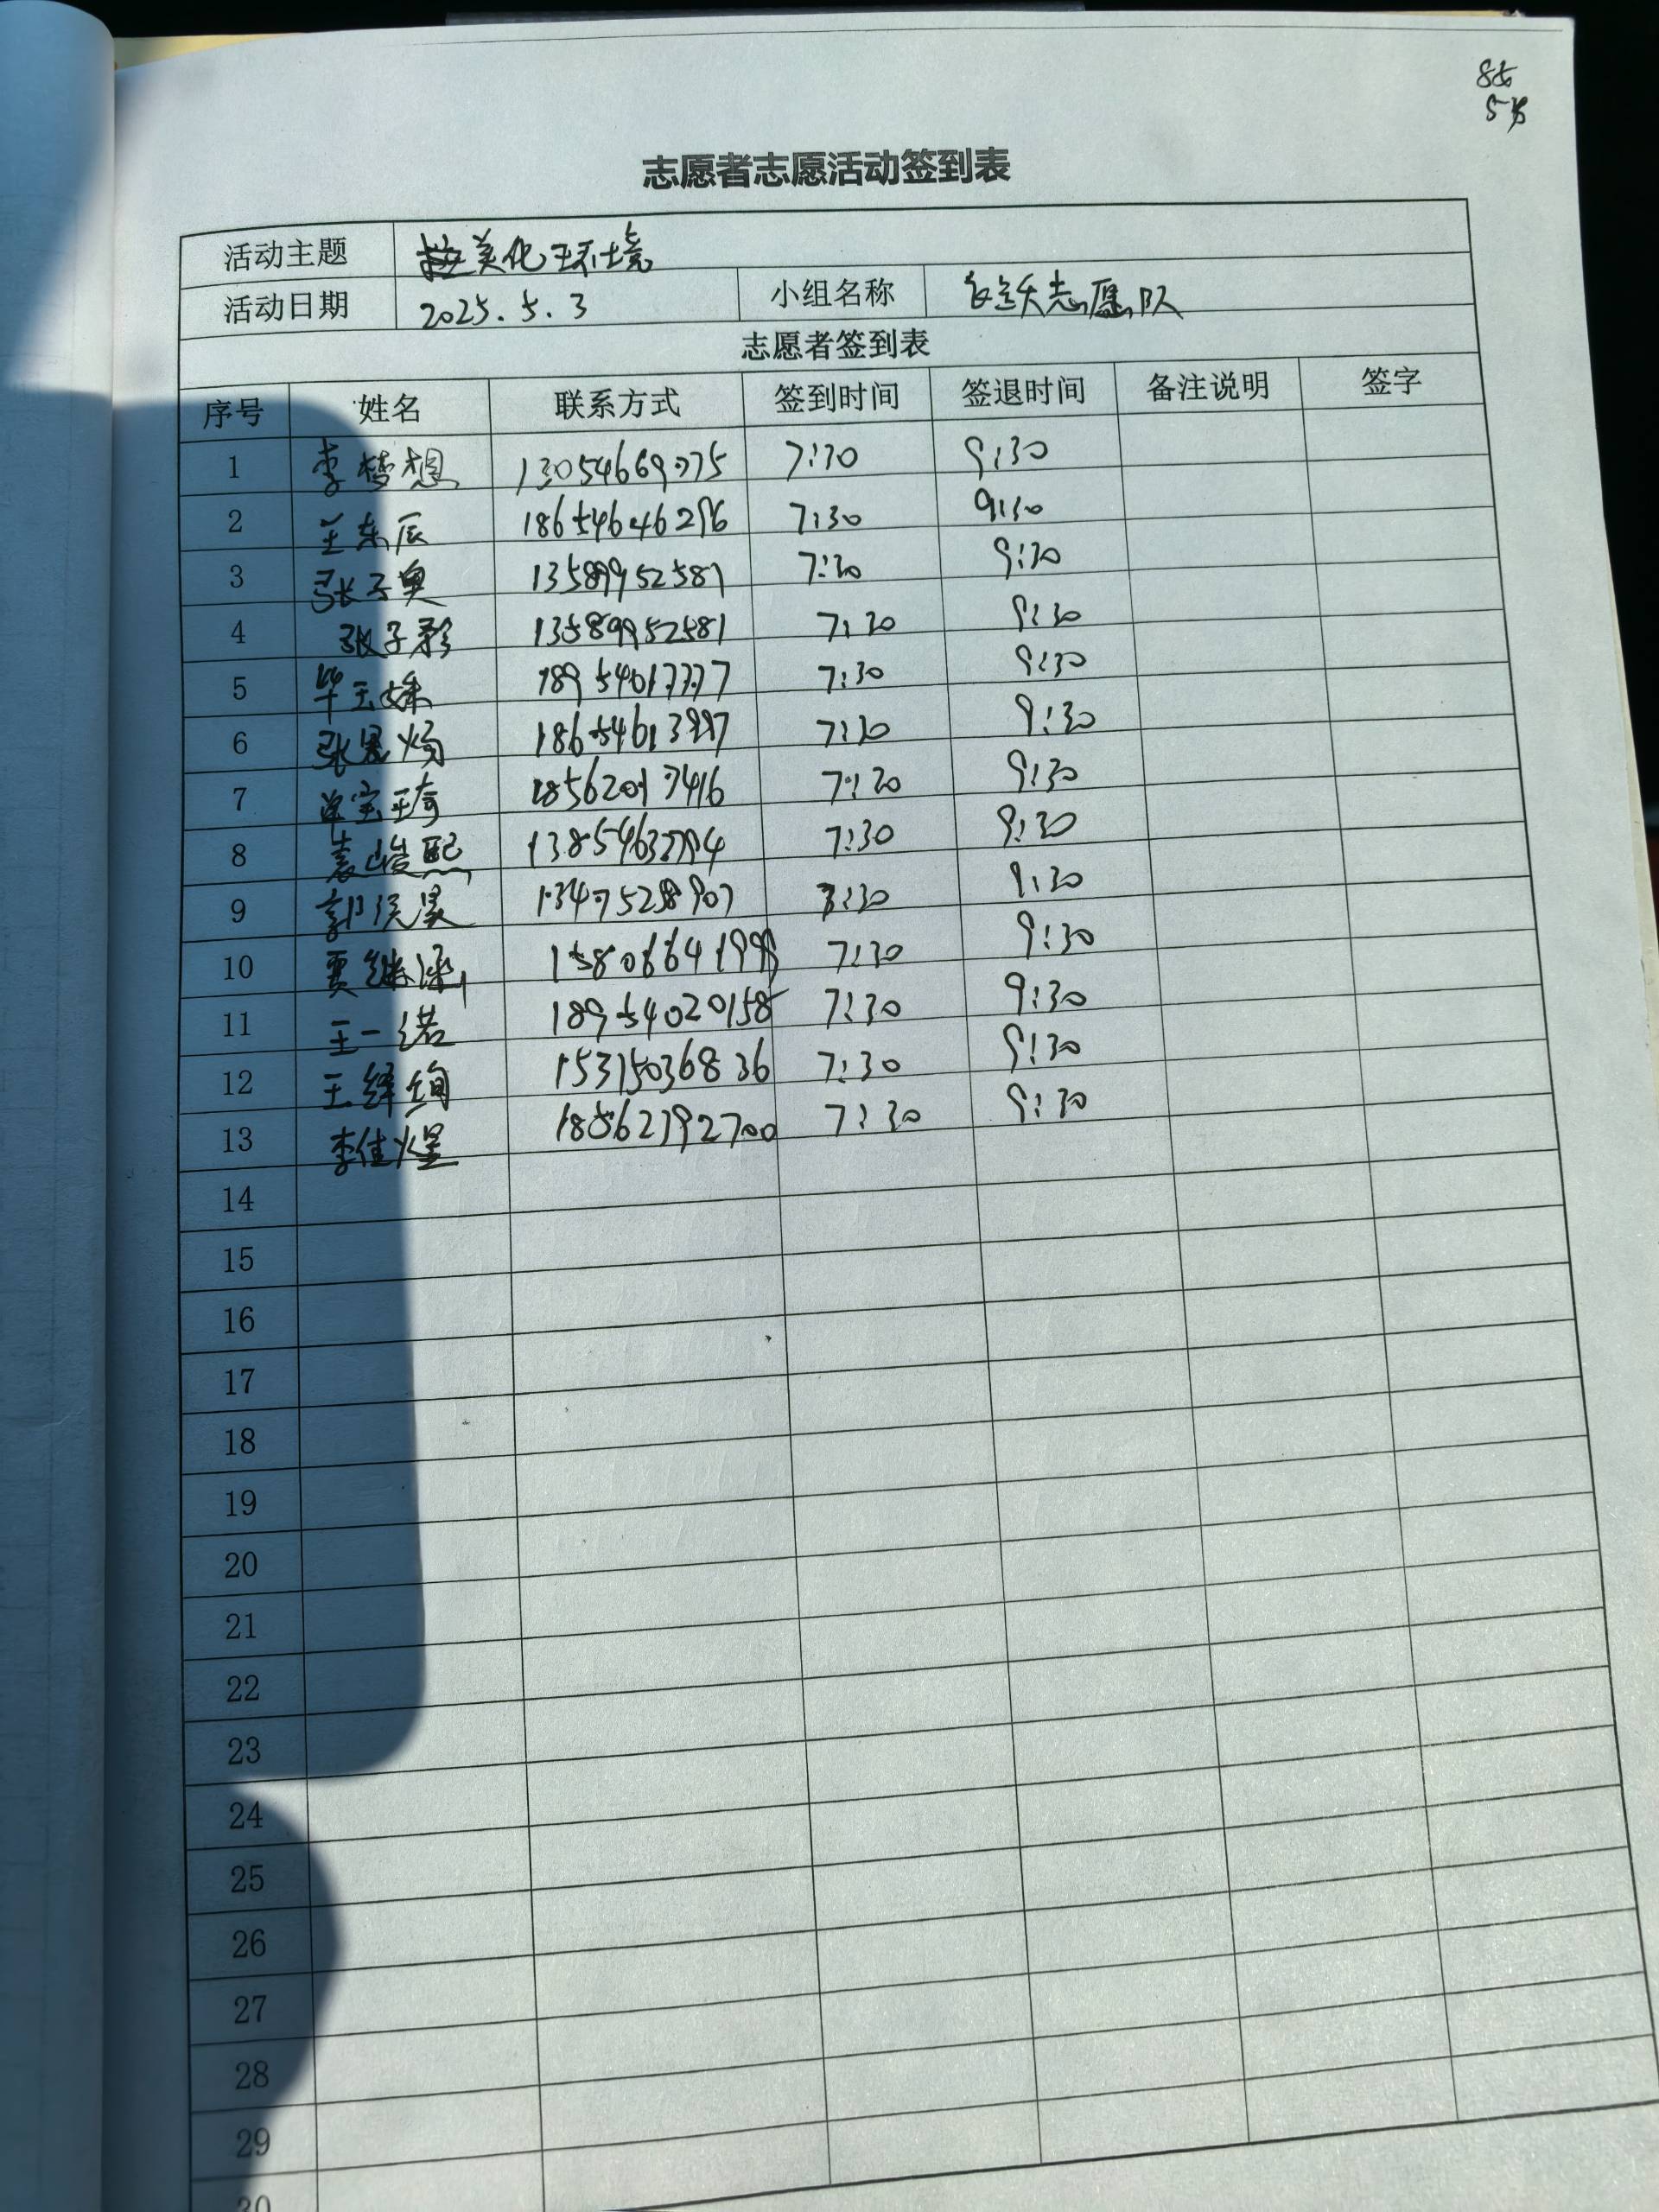 志愿者志愿活动签到表
活动主题 美化环境
活动日期 2025.5.3 小组名称 志愿队
志愿者签到表
序号 姓名 联系方式 签到时间 签退时间 备注说明 签字
1 李梦想 13054669775 7:30 9:30
2 王东辰 18654646296 7:30 9:30
3 张子奥 13589952581 7:30 9:30
4 张子彩 13589952581 7:30 9:30
5 毕玉姝 18954017777 7:30 9:30
6 张恩炀 18654613997 7:30 9:30
7 单宝琦 18562017416 7:30 9:30
8 袁峻熙 13854632794 7:30 9:30
9 郭 13475258907 7:30 9:30
10 贾继涵 15806641999 7:30 9:30
11 王一诺 18954020158 7:30 9:30
12 王绎绚 15315036836 7:30 9:30
13 李佳煋 18562792700 7:30 9:30
14
15
16
17
18
19
20
21
22
23
24
25
26
27
28
29
30